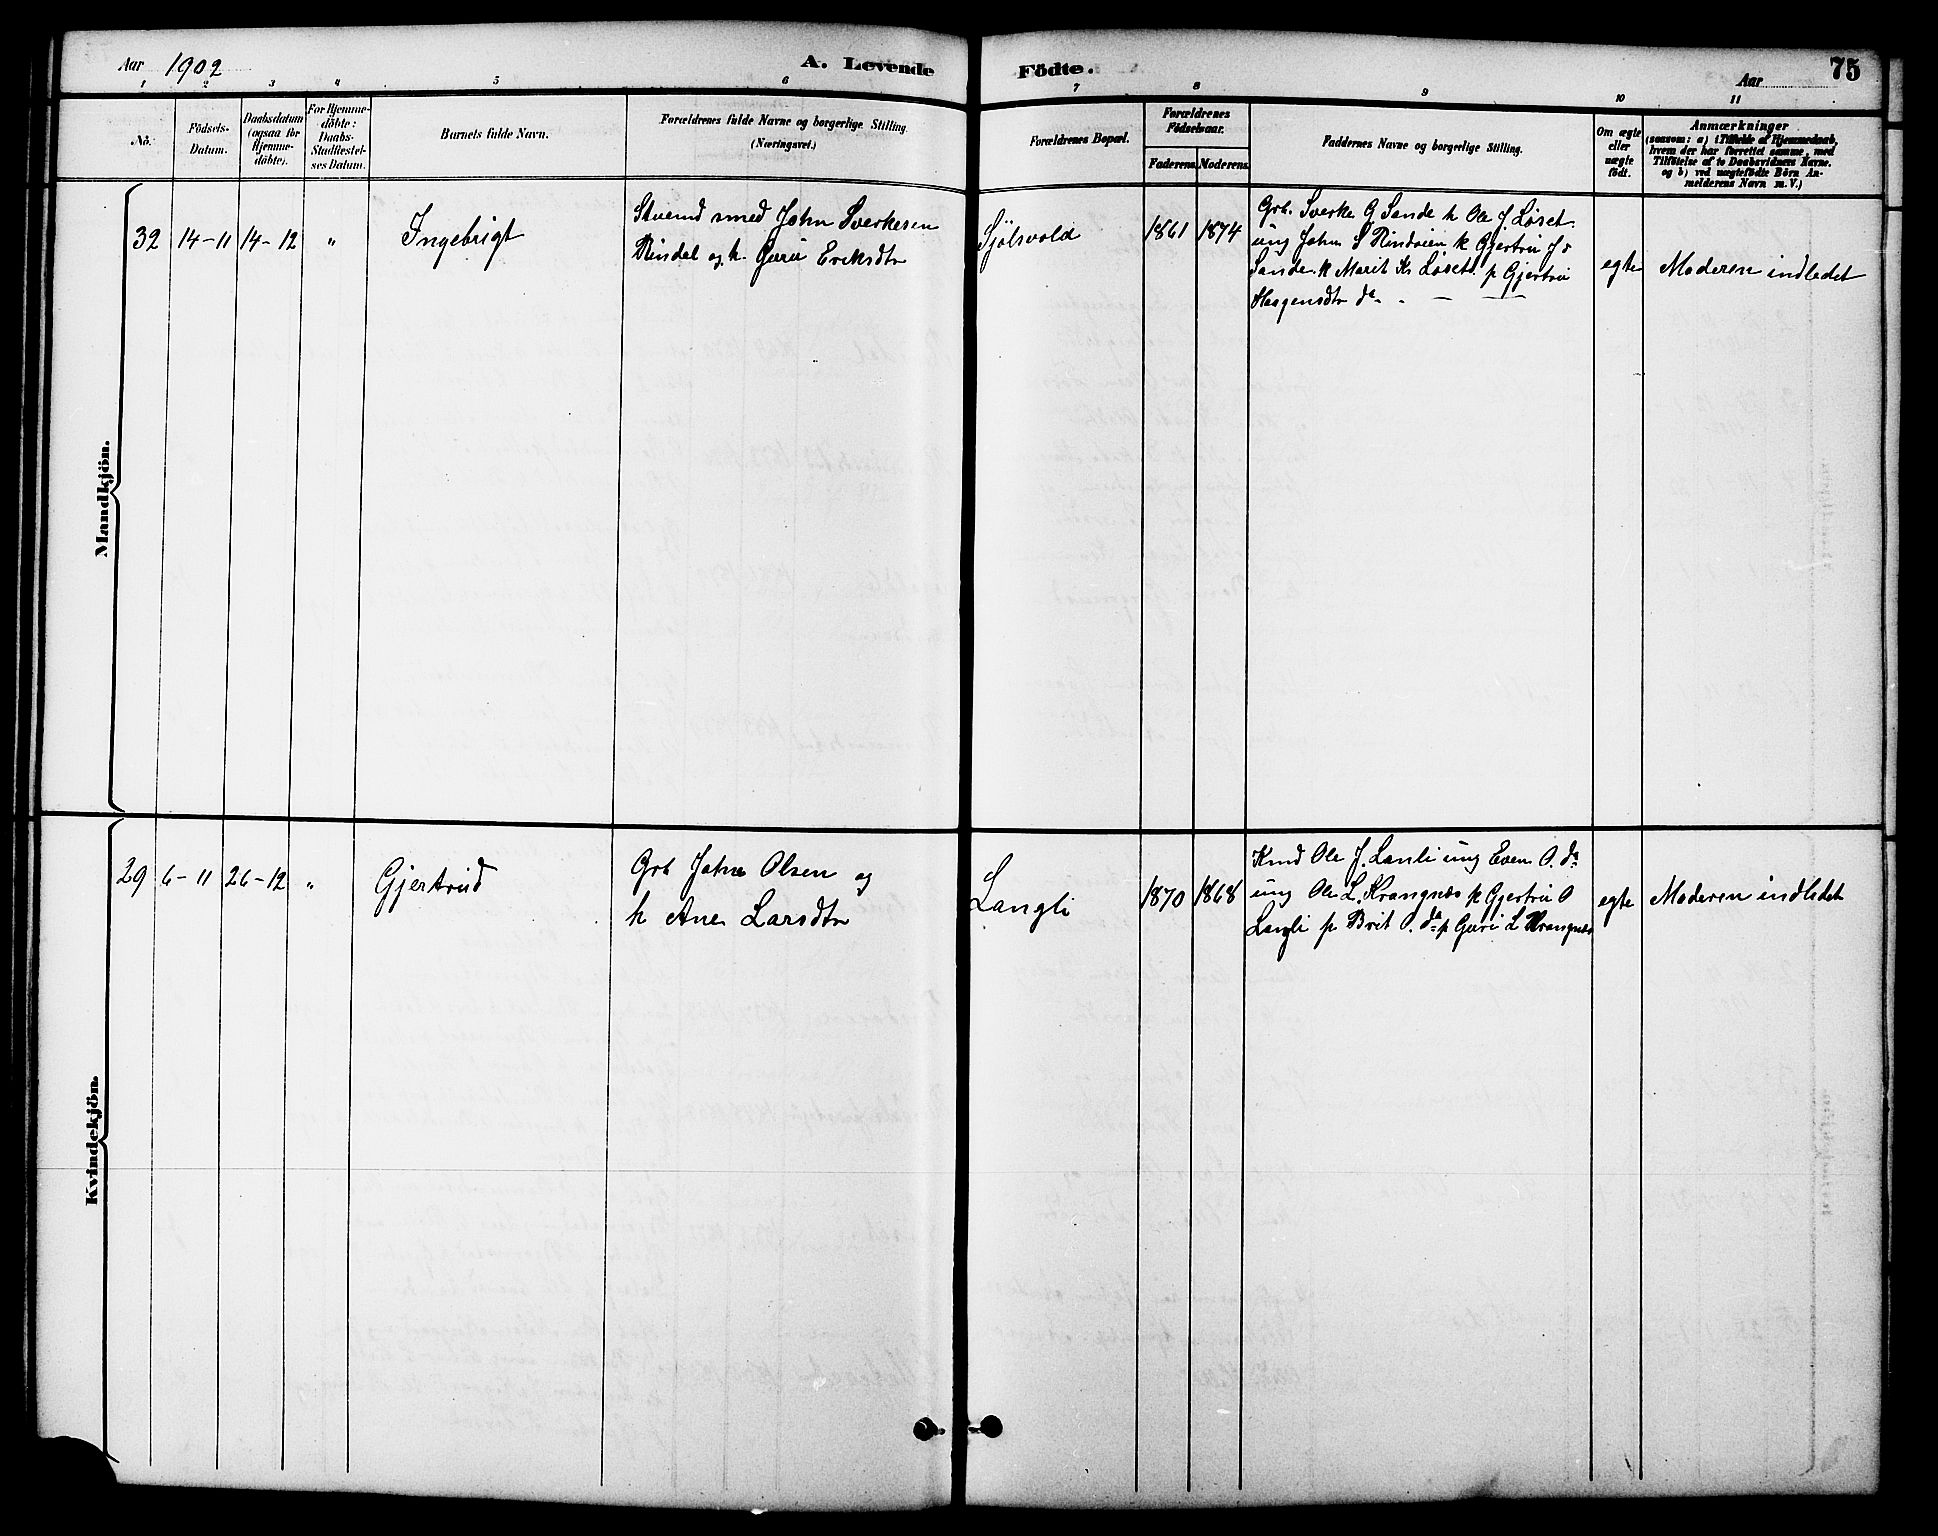 Aar 1902
A. Levende
Födte.
Aar
75
1 2 3 4 5 6 7 8 9 10 11
No.
Födsels-
Datum.
Daabsdatum
(ogsaa for
Hjemme-
döbte).
For Hjemme-
döbte:
Daabs-
Stadfæstel-
ses Datum.
Barnets fulde Navn.
Forældrenes fulde Navne og borgerlige Stilling.
(Næringsvei.)
Forældrenes Bopæl.
Forældrenes
Födselsaar.
Faderens
Moderens
Faddernes Navne og borgerlige Stilling.
Om ægte
eller
uægte
födt.
Anmærkninger
(saasom: a) i Tilfælde af Hjemmedaab,
hvem der har forrettet samme, med
Tilföielse af to Daabsvidners Navne.
og b) ved uægtefödte Börn An-
melderens Navn m. V.)
Mandkjön.
32 14-11 14-12 " Ingebrigt
smed John Sverkesen
Rindal og h. Guru Eriksdtr
Sjölsvold
1861 1874
Grb. Sverke G Sande k Ole J. Løset
ung John S Rindvien k Gjertru J s
Sande k Marit Kr Løset p Gjertru
Haagensdtr do - - -
egte
Moderen indledet
Kvindekjön.
29 6-11 26-12 " Gjertrud
Grb John Olsen og
h Ane Larsdtr
Langli
1870 1868
Knud Ole J. Lanli ung Even O. do
ung Ole L. Krangnæs k Gjertru O
Langli p Brit O. do p Guri L Krangnæs
egte
Moderen indledet